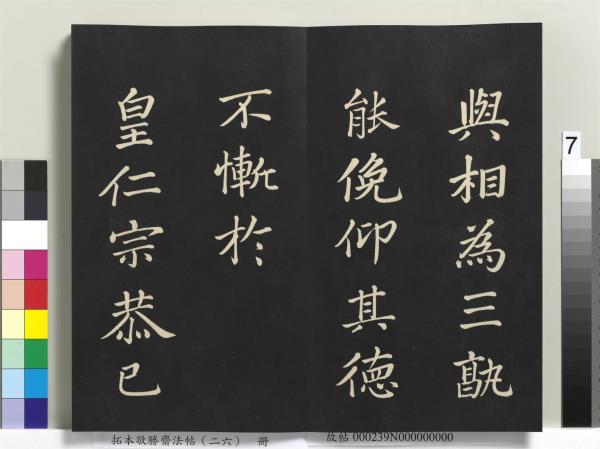 與相為三孰
能俛仰其德
不慚於
皇仁宗恭已
7
拓本敬勝齋法帖（二六） 冊
故帖 000239N000000000